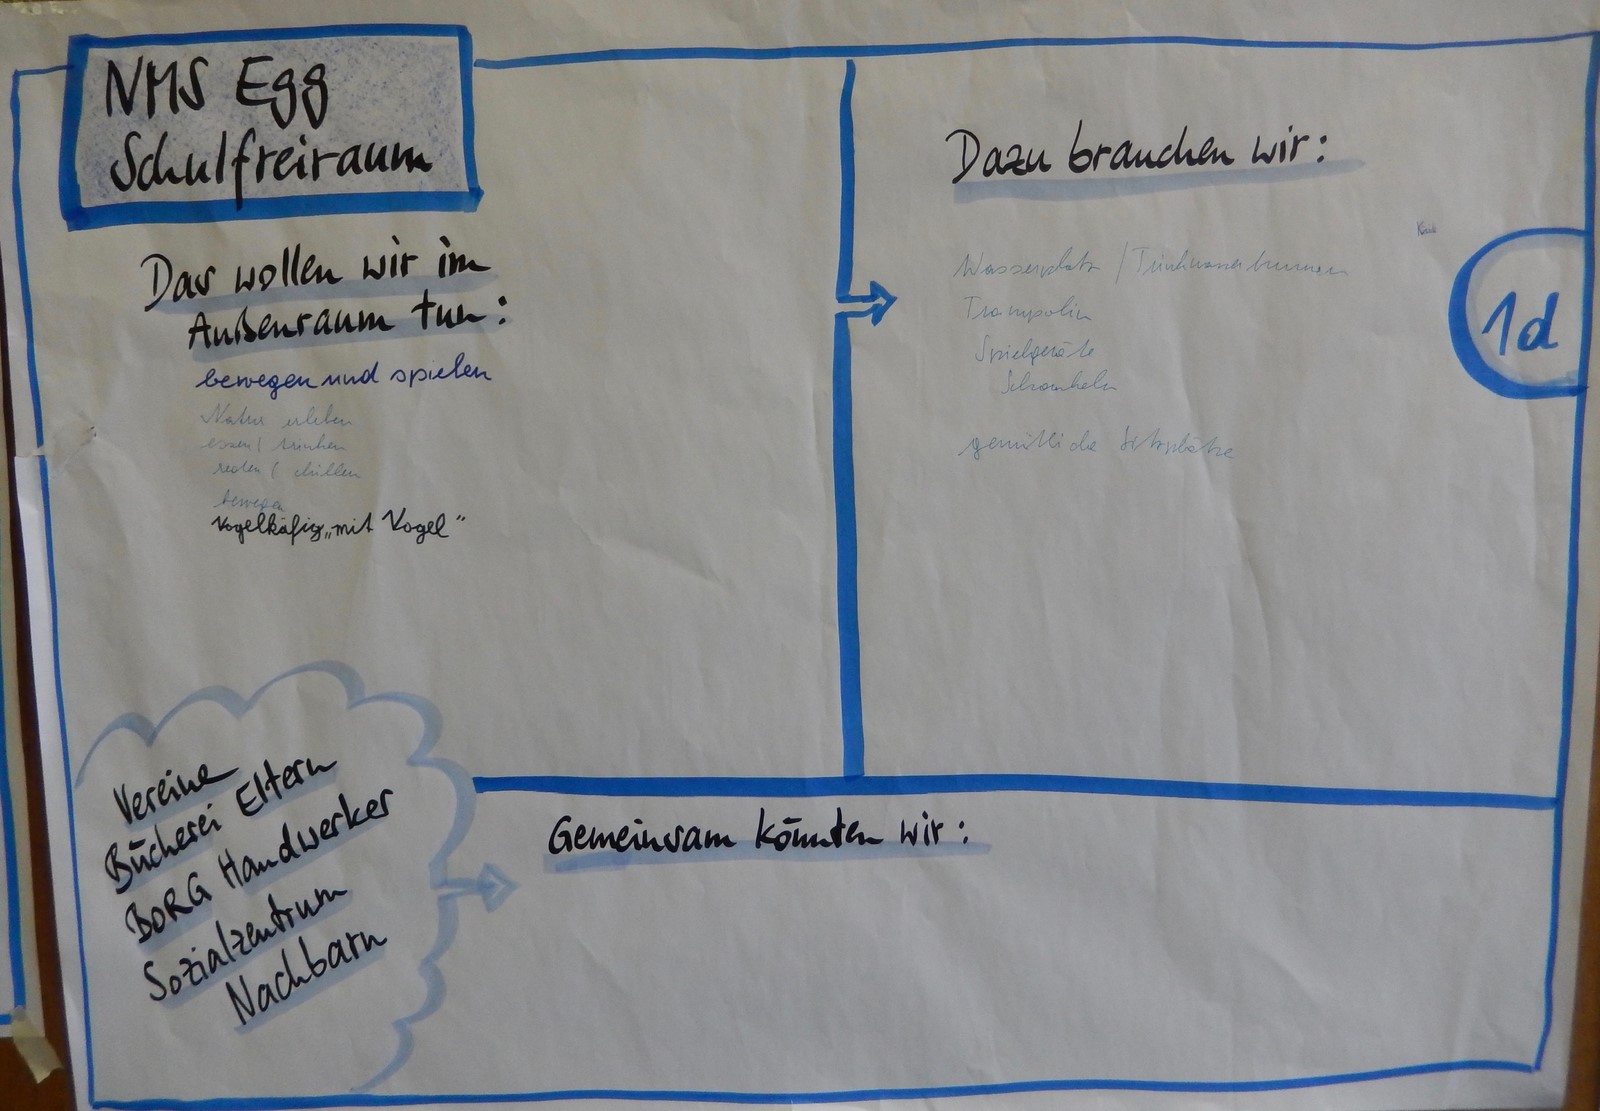 NMS Egg
Schulfreiraum
Das wollen wir im
Außenraum tun:
bewegen und spielen
Natur erleben
essen / trinken
reden / chillen
bewegen
Vogelkäfig „mit Vogel"
Dazu brauchen wir:
Wasserplatz / Trinkwasserbrunnen
Trampolin
Spielgeräte
Schaukeln
gemütliche Sitzplätze
1d
Vereine
Bücherei Eltern
BORG Handwerker
Sozialzentrum
Nachbarn
Gemeinsam könnten wir: